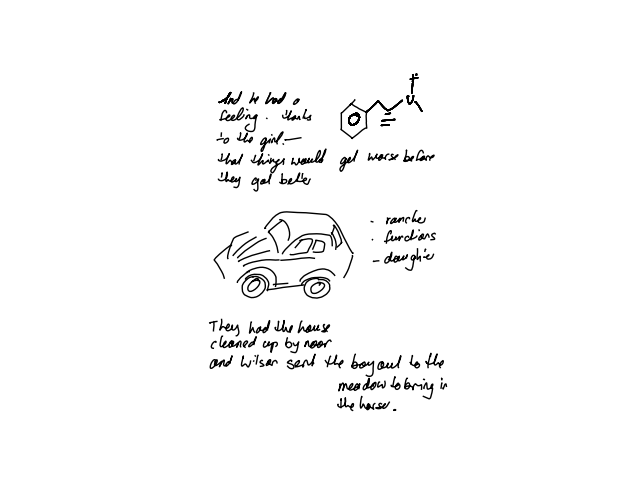 And he had a
feeling. thanks
to the girl.—
that things would get worse before
they got better
- rancher
. functions
- daughter
They had the house
cleaned up by noon
and Wilson sent the boy out to the
meadow to bring in
the horse.